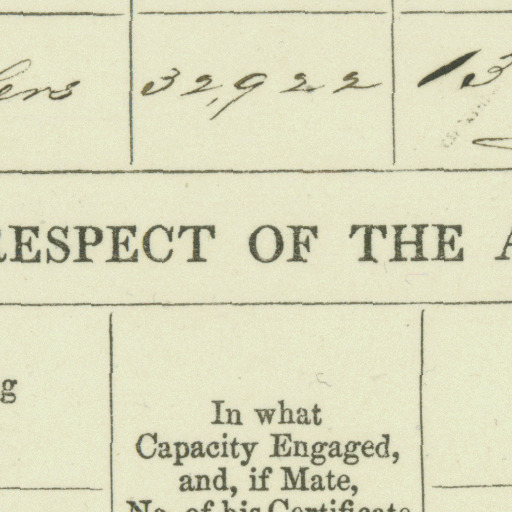 32,922 13
RESPECT OF THE A
g
In what
Capacity Engaged,
and, if Mate,
No. of his Certificate